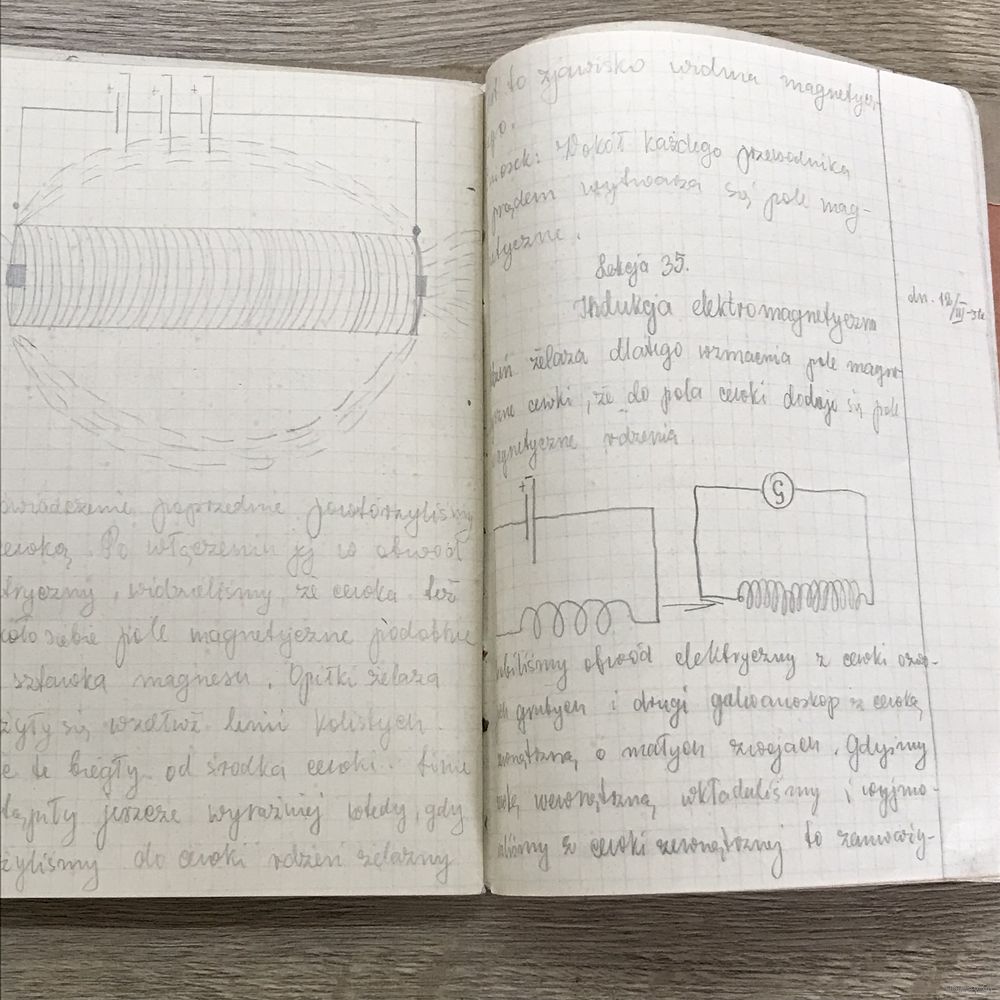 + + +
owiadczenie poprzednie powtórzyliśmy
cewką. Po włączeniu jej w obwód
tryczny, widzieliśmy że cewka też
koło siebie pole magnetyczne podobne
sztabka magnesu. Opiłki żelaza
żyły się wzdłuż linii kolistych.
e te biegły od środka cewki. Linie
tąpiły jeszcze wyraźniej wtedy, gdy
żyliśmy do cewki rdzeń żelazny
to zjawisko widma magnetycz-
go.
niosek: Wokół każdego przewodnika
prądem wytwarza się pole mag-
etyczne.
Lekcja 35.
Indukcja elektromagnetyczna
dn. 12/III-
dzeń żelaza dlatego wzmacnia pole magne-
yczne cewki, że do pola cewki dodaje się pole
agnetyczne rdzenia
+
G
obiliśmy obwód elektryczny z cewki
ch grubych i drugi galwanoskop z cewką
ewnętrzną o małych zwojach. Gdyśmy
ewkę wewnętrzną wkładaliśmy i wyjmo-
aliśmy z cewki zewnętrznej to zauważy-